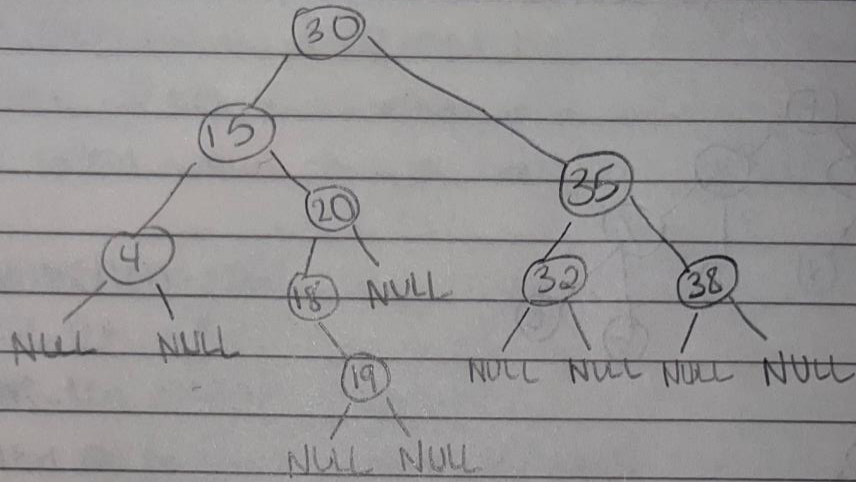 30
15
35
20
4
18 NULL 32 38
NULL NULL
19 NULL NULL NULL NULL
NULL NULL